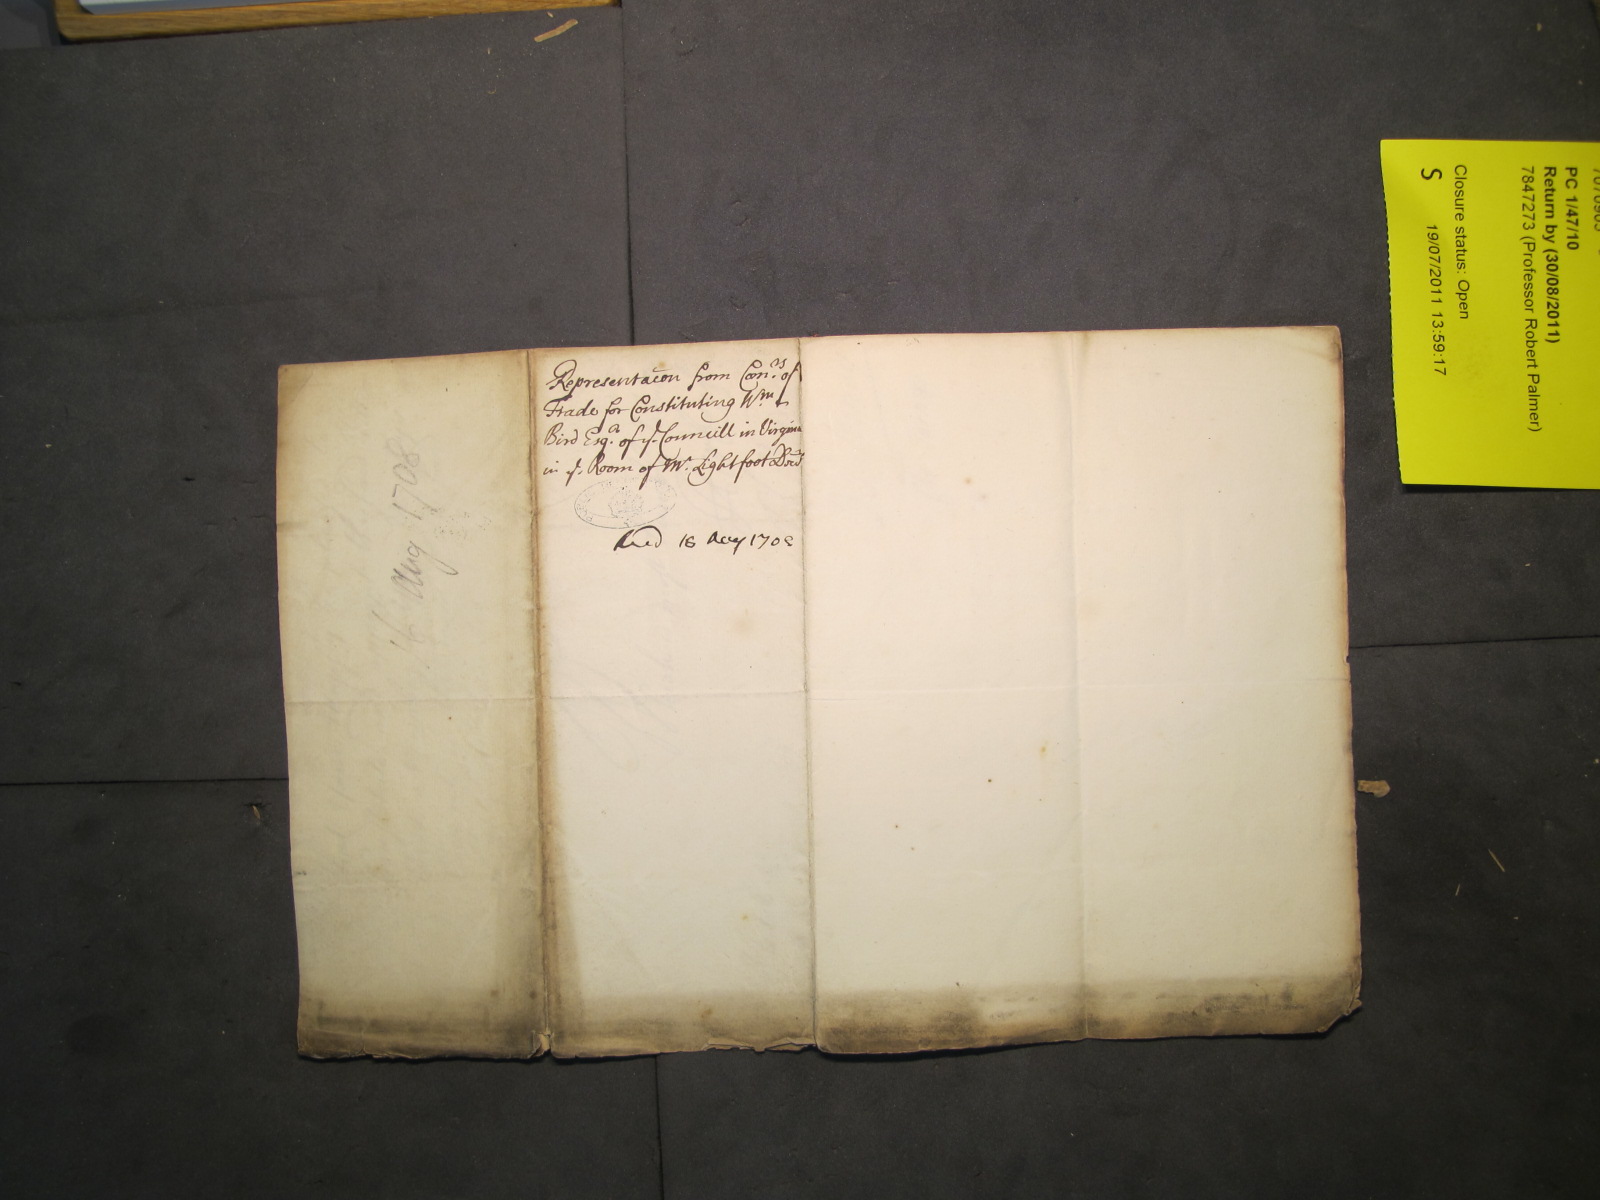 Representacon from Com.rs of
Trade for Constituting Wm
Bird Esqr. of ye. Councill in Virginia
in ye. Room of Mr. Lightfoot Decd
Read 18 Aug 1708
Aug 1708
PC 1/47/10
Return by (30/08/2011)
7847273 (Professor Robert Palmer)
Closure status: Open
S 19/07/2011 13:59:17